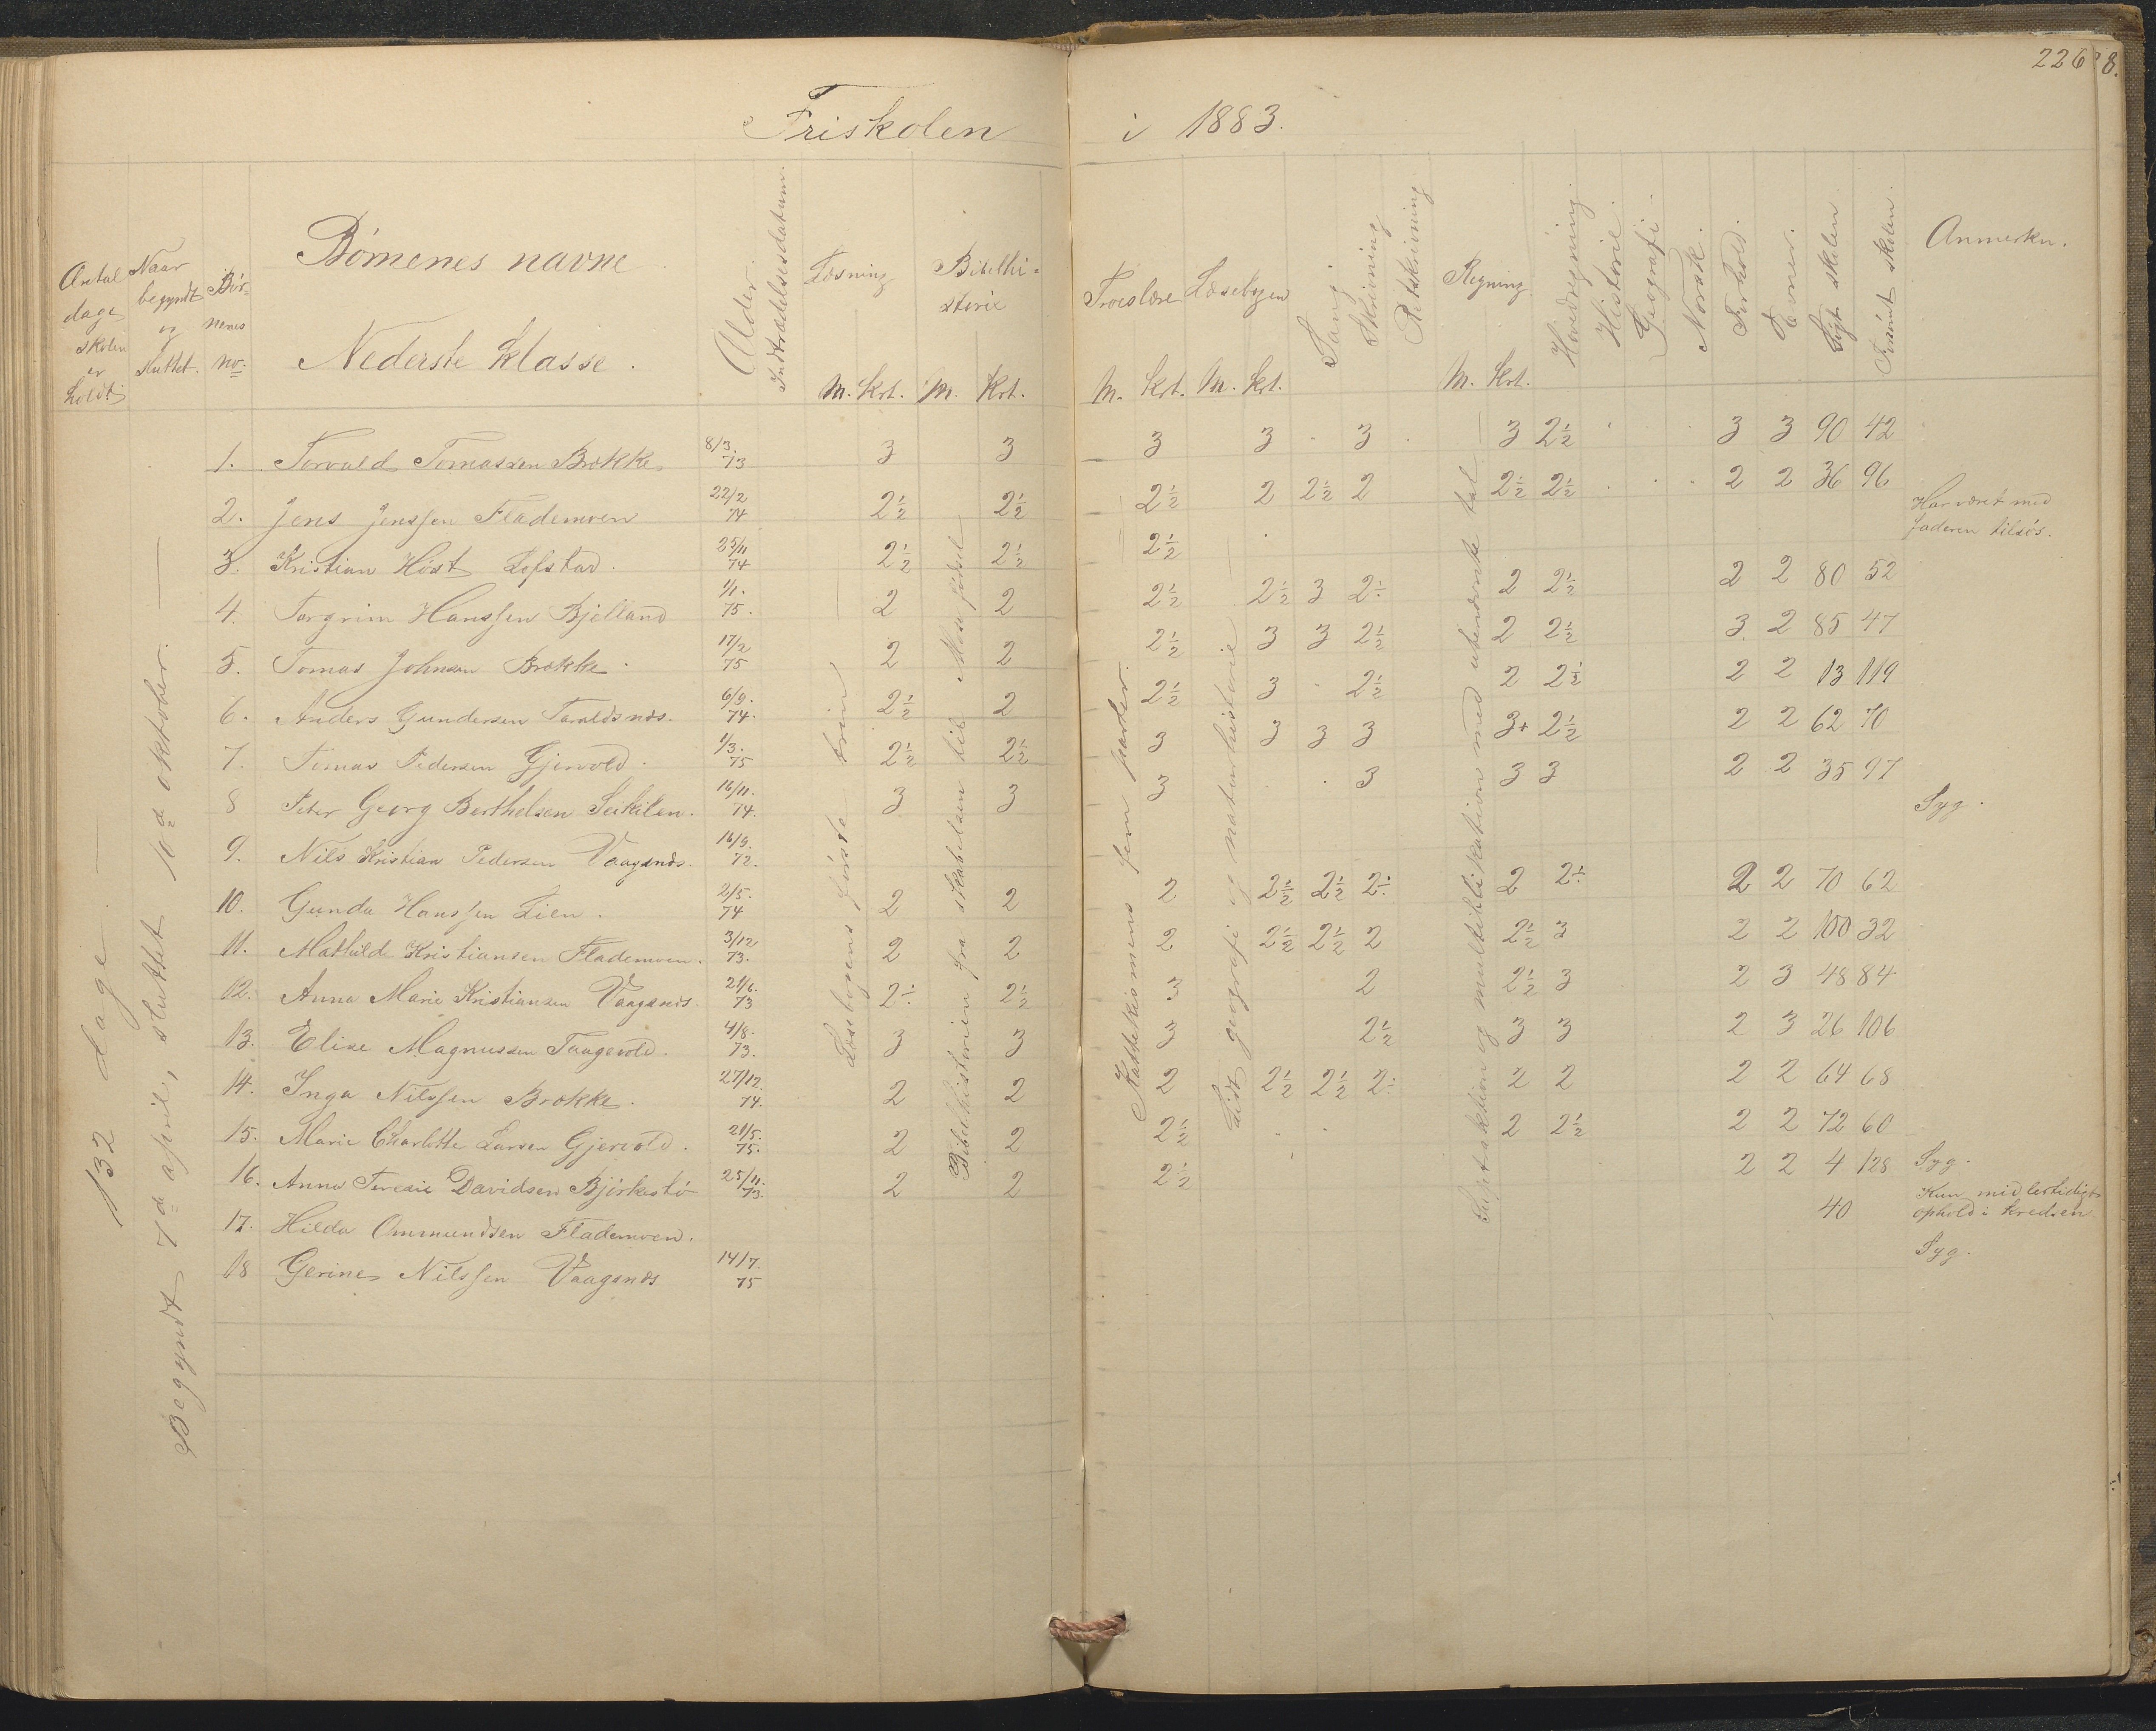 226 8.
Friskolen i 1883.
Antal dage skolen er holdt
Naar begyndt og sluttet.
Børnenes no.
Børnenes navne
Nederste klasse.
Alder.
Indtrædelsesdatum.
Læsning M. Krt.
Bibelhistorie M. Krt.
Troeslære M. Krt.
Læsebogen M. Krt.
Sang
Skrivning
Retskrivning
Regning M. Krt.
Hovedregning
Historie.
Geografi.
Norsk.
Forhold.
Evner.
Søgt skolen
Forsømt skolen.
Anmerkn.
132 dage
Begyndt 7d april, sluttet 10d oktober.
Læsebogens første trin
Bibelhistorien fra skabelsen til Mose fødsel
Katekismens fem parter.
Lidt geografi og naturhistorie
Subtraktion og multiklikation med ubenævnte tal
1. Torvald Tomassen Brokke 8/3. 73 3 3 3 3 3 3 2½ 3 3 90 42
2. Jens Jenssen Flademoen 22/2 74 2½ 2½ 2½ 2 2½ 2 2½ 2½ 2 2 36 96
3. Kristian Høst Lofstad. 25/11 74 2½ 2½ 2½ Har været med faderen tilsøs.
4. Torgrim Hanssen Bjelland 1/1. 75. 2 2 2½ 2½ 3 2÷ 2 2½ 2 2 80 52
5. Tomas Johnsen Brokke. 17/2 75 2 2 2½ 3 3 2½ 2 2½ 3 2 85 47
6. Anders Gundersen Taraldsnæs. 6/9. 74. 2½ 2 2½ 3 2½ 2 2½ 2 2 13 119
7. Tomas Pedersen Gjervold. 1/3. 75 2½ 2½ 3 3 3 3 3+ 2½ 2 2 62 70
8 Peter Georg Berthelsen Seekilen. 16/11. 74. 3 3 3 3 3 3 2 2 35 97
9. Nils Kristian Pedersen Vaagsnæs. 16/9. 72. Syg.
10. Gunda Hanssen Lien. 2/5. 74 2 2 2 2½ 2½ 2÷ 2 2÷ 2 2 70 62
11. Mathilde Kristiansen Flademoen. 3/12 73. 2 2 2 2½ 2½ 2 2½ 3 2 2 100 32
12. Anna Marie Kristiansen Vaagsnæs. 21/6. 73 2÷ 2½ 3 2 2½ 3 2 3 48 84
13. Elise Magnussen Taagevold. 4/8. 73. 3 3 3 2½ 3 3 2 3 26 106
14. Inga Nilssen Brokke. 27/12. 74. 2 2 2 2½ 2½ 2÷ 2 2 2 2 64 68
15. Marie Charlotte Larsen Gjervold. 21/5. 75. 2 2 2½ 2 2½ 2 2 72 60
16. Anna Teresie Davidsen Bjørkestø 25/11. 73 2 2 2½ 2 2 4 128 Syg.
17. Hilda Ommundsen Flademoen. 40 Kun midlertidigt ophold i kredsen
18 Gerine Nilssen Vaagsnæs 14/7. 75 Syg.